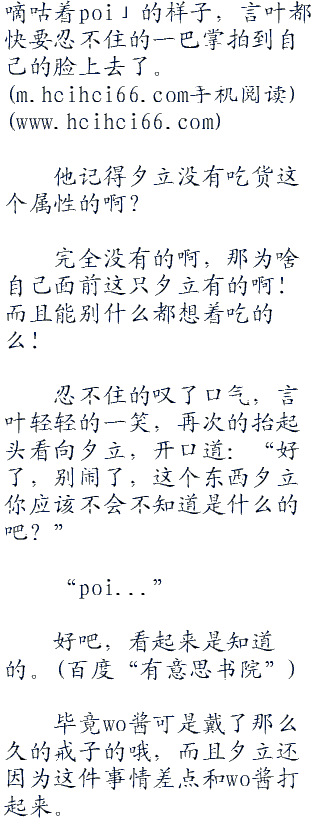 嘀咕着poi」的样子，言叶都
快要忍不住的一巴掌拍到自
己的脸上去了。
(m.hcihci66.com手机阅读)
(www.hcihci66.com)
他记得夕立没有吃货这
个属性的啊？
完全没有的啊，那为啥
自己面前这只夕立有的啊！
而且能别什么都想着吃的
么！
忍不住的叹了口气，言
叶轻轻的一笑，再次的抬起
头看向夕立，开口道：“好
了，别闹了，这个东西夕立
你应该不会不知道是什么的
吧？”
“poi...”
好吧，看起来是知道
的。(百度“有意思书院”)
毕竟wo酱可是戴了那么
久的戒子的哦，而且夕立还
因为这件事情差点和wo酱打
起来。